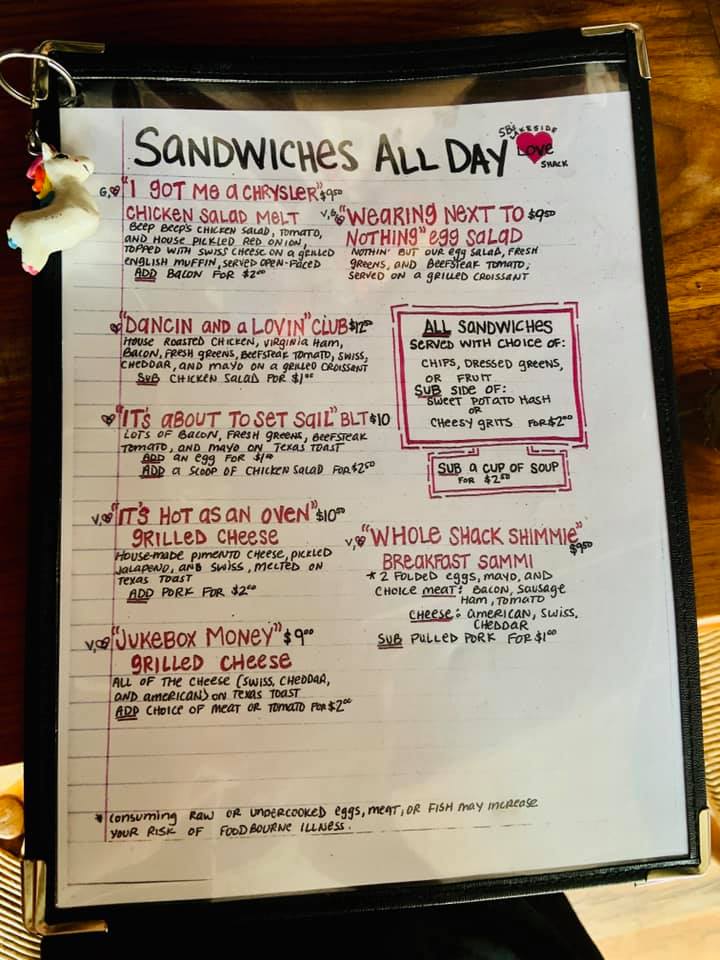 SANDWICHES ALL DAY
SB's LAKESIDE
LOVE
SHACK
G, "I GOT ME A CHRYSLER" $9.50
CHICKEN SALAD MELT
BEEP BEEP'S CHICKEN SALAD, TOMATO,
AND HOUSE PICKLED RED ONION,
TOPPED WITH SWISS CHEESE ON A GRILLED
ENGLISH MUFFIN, SERVED OPEN-FACED
ADD BACON FOR $2.00
V,G, "WEARING NEXT TO $9.50
NOTHING" EGG SALAD
NOTHIN' BUT OUR EGG SALAD, FRESH
GREENS, AND BEEFSTEAK TOMATO;
SERVED ON A GRILLED CROISSANT
"DANCIN AND A LOVIN" CLUB $12.00
HOUSE ROASTED CHICKEN, VIRGINIA HAM,
BACON, FRESH GREENS, BEEFSTEAK TOMATO, SWISS,
CHEDDAR, AND MAYO ON A GRILLED CROISSANT
SUB CHICKEN SALAD FOR $1.00
ALL SANDWICHES
SERVED WITH CHOICE OF:
CHIPS, DRESSED GREENS,
OR FRUIT
SUB SIDE OF:
SWEET POTATO HASH
OR
CHEESY GRITS FOR $2.00
SUB A CUP OF SOUP
FOR $2.50
"IT'S ABOUT TO SET SAIL" BLT $10
LOTS OF BACON, FRESH GREENS, BEEFSTEAK
TOMATO, AND MAYO ON TEXAS TOAST
ADD AN EGG FOR $1.00
ADD A SCOOP OF CHICKEN SALAD FOR $2.50
V, "IT'S HOT AS AN OVEN" $10.50
GRILLED CHEESE
HOUSE-MADE PIMENTO CHEESE, PICKLED
JALAPENO, AND SWISS, MELTED ON
TEXAS TOAST
ADD PORK FOR $2.00
V, "WHOLE SHACK SHIMMIE"
$9.50
BREAKFAST SAMMI
* 2 FOLDED EGGS, MAYO, AND
CHOICE MEAT: BACON, SAUSAGE
HAM, TOMATO
CHEESE: AMERICAN, SWISS,
CHEDDAR
SUB PULLED PORK FOR $1.00
V, "JUKEBOX MONEY" $9.00
GRILLED CHEESE
ALL OF THE CHEESE (SWISS, CHEDDAR,
AND AMERICAN) ON TEXAS TOAST
ADD CHOICE OF MEAT OR TOMATO FOR $2.00
* CONSUMING RAW OR UNDERCOOKED EGGS, MEAT, OR FISH MAY INCREASE
YOUR RISK OF FOODBOURNE ILLNESS.